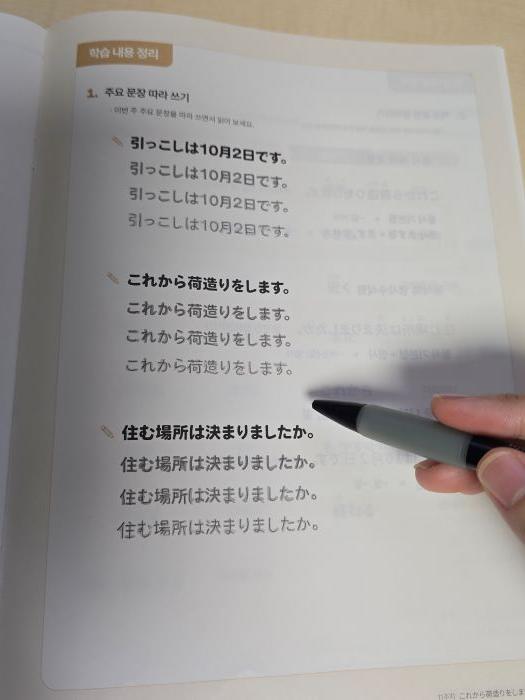 학습 내용 정리
1. 주요 문장 따라 쓰기
· 이번 주 주요 문장을 따라 쓰면서 읽어 보세요.
引っこしは10月2日です。
引っこしは10月2日です。
引っこしは10月2日です。
引っこしは10月2日です。
これから荷造りをします。
これから荷造りをします。
これから荷造りをします。
これから荷造りをします。
住む場所は決まりましたか。
住む場所は決まりましたか。
住む場所は決まりましたか。
住む場所は決まりましたか。
これから荷造りをしま